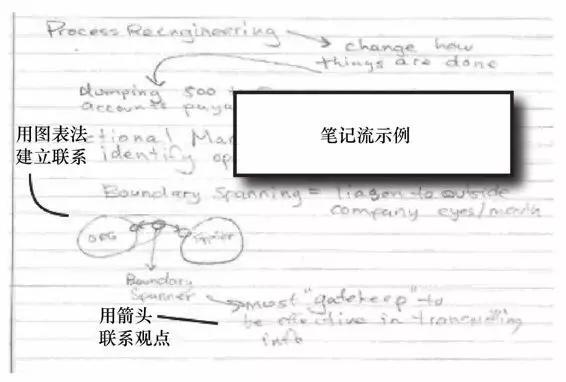 Process Reengineering
change how
things are done
dumping 500
accounts paya
笔记流示例
ctional Man
identify op
用图表法
建立联系
Boundary Spanning = liason to outside
company eyes/mouth
ORG
Boundary
Spanner
must "gatekeep" to
be effective in transmitting
info
用箭头
联系观点